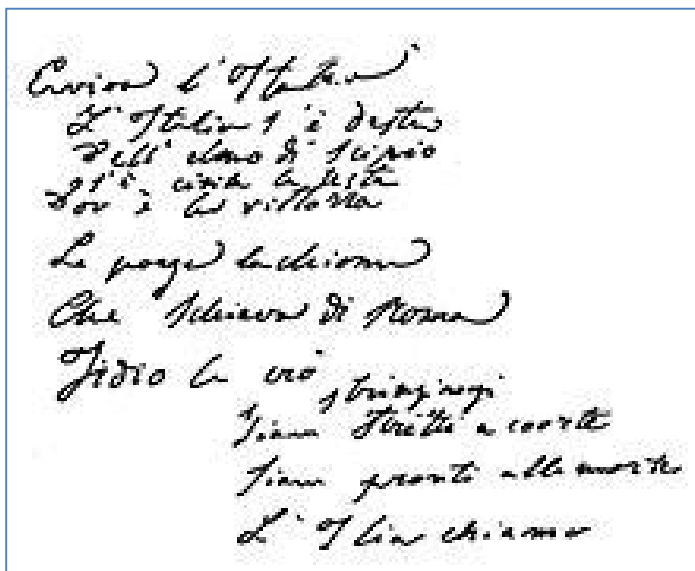 Evviva l'Italia
L'Italia s'è desta
Dell'elmo di Scipio
s'è cinta la testa
Dov'è la vittoria
Le porga la chioma
Che schiava di Roma
Iddio la creò
stringiamoci
Siam stretti a coorte
Siam pronti alla morte
L'Italia chiamò